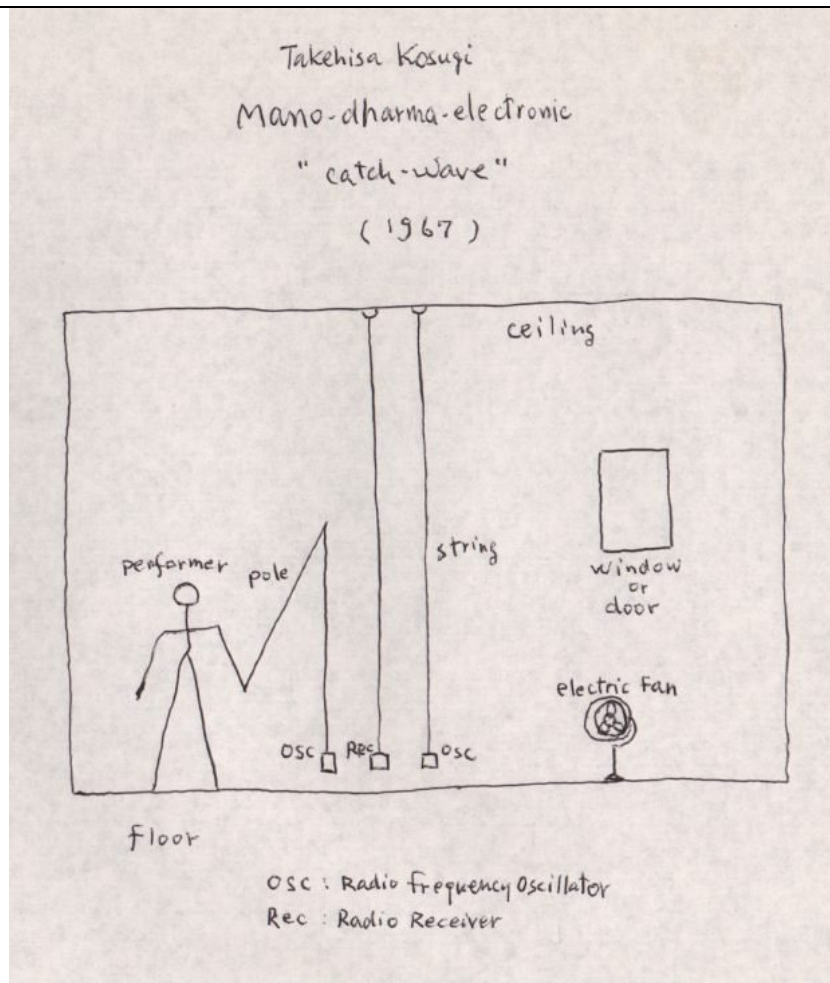 Takehisa Kosugi
Mano-dharma-electronic
"catch-wave"
(1967)
ceiling
performer
pole
string
window
or
door
electric fan
OSC REC OSC
floor
OSC : Radio frequency Oscillator
Rec : Radio Receiver